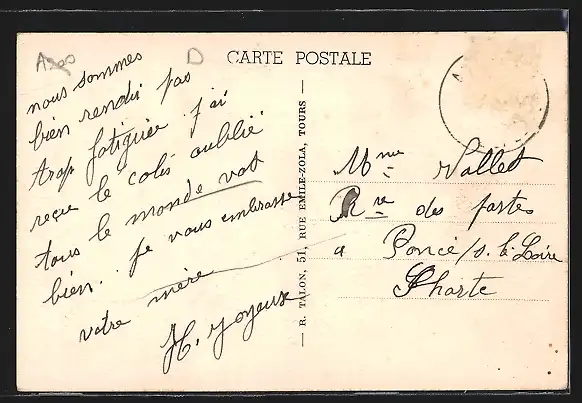 CARTE POSTALE
nous sommes
bien rendu pas
trop fatiguée j'ai
reçu le colis oublié
tous le monde vat
bien.. je vous embrasse
votre mère
H. Joyeux
— R. TALON, 51, RUE EMILE-ZOLA, TOURS —
Mme Vallet
Rve des postes
a Poncé/s. le Loire
Sharte